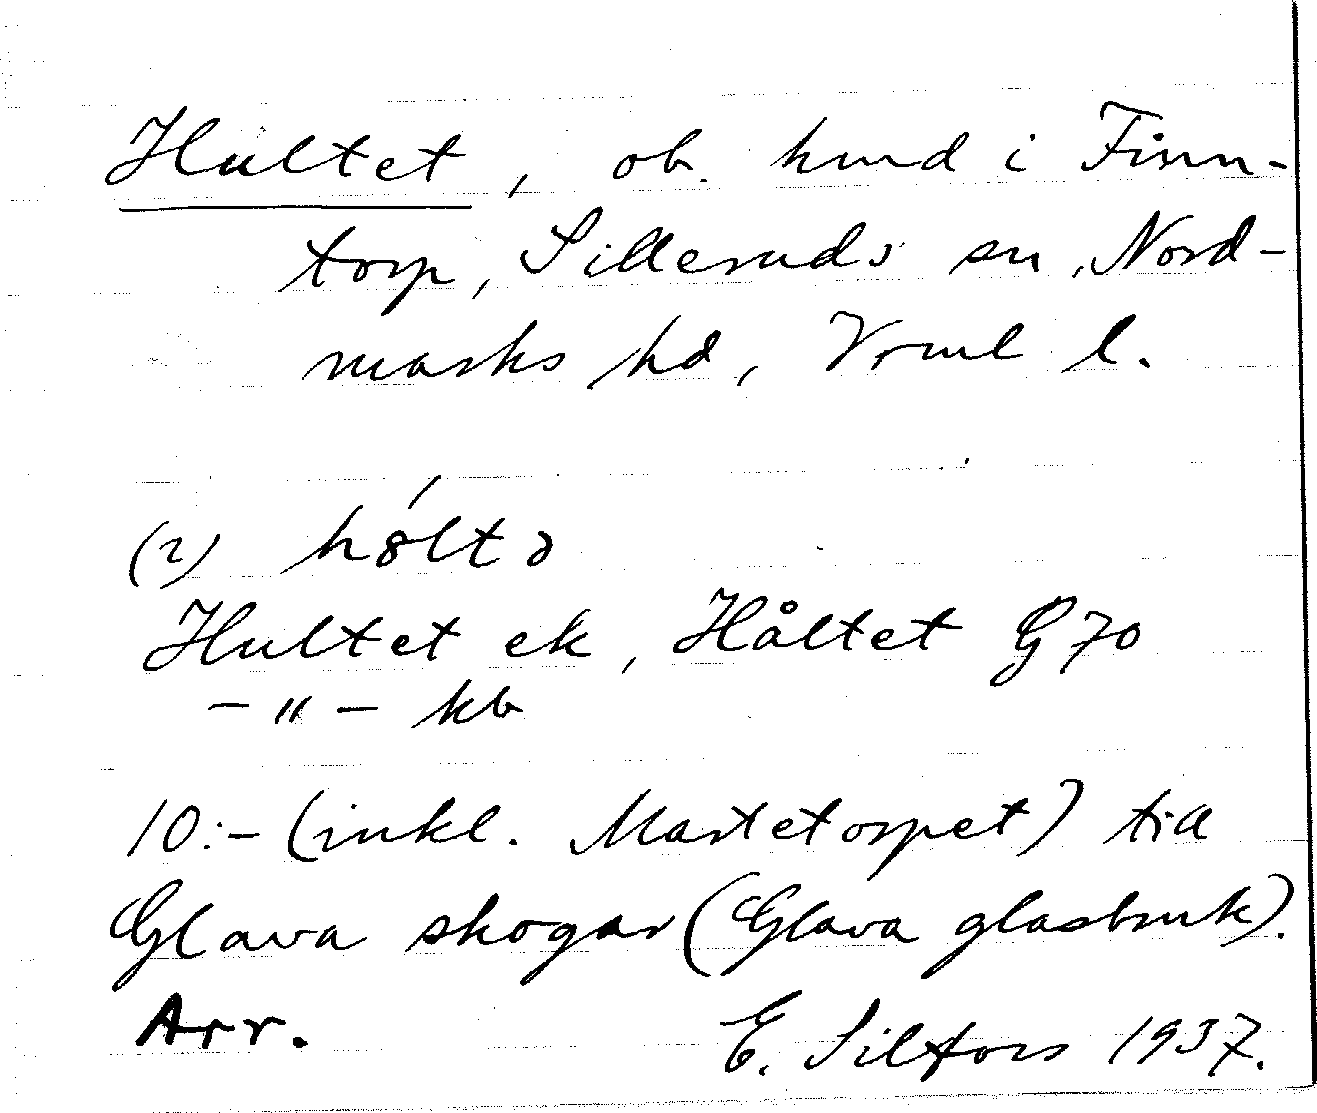 Hultet, ob. hmd i Finn-
torp, Silleruds sn, Nord-
marks hd, Vrml l.
(2) hó̵ltə
Hultet ek, Håltet G70
-"- kb
10:- (inkl. Martetorpet) till
Glava skogar (Glava glasbruk).
Arr. E. Silfors 1937.